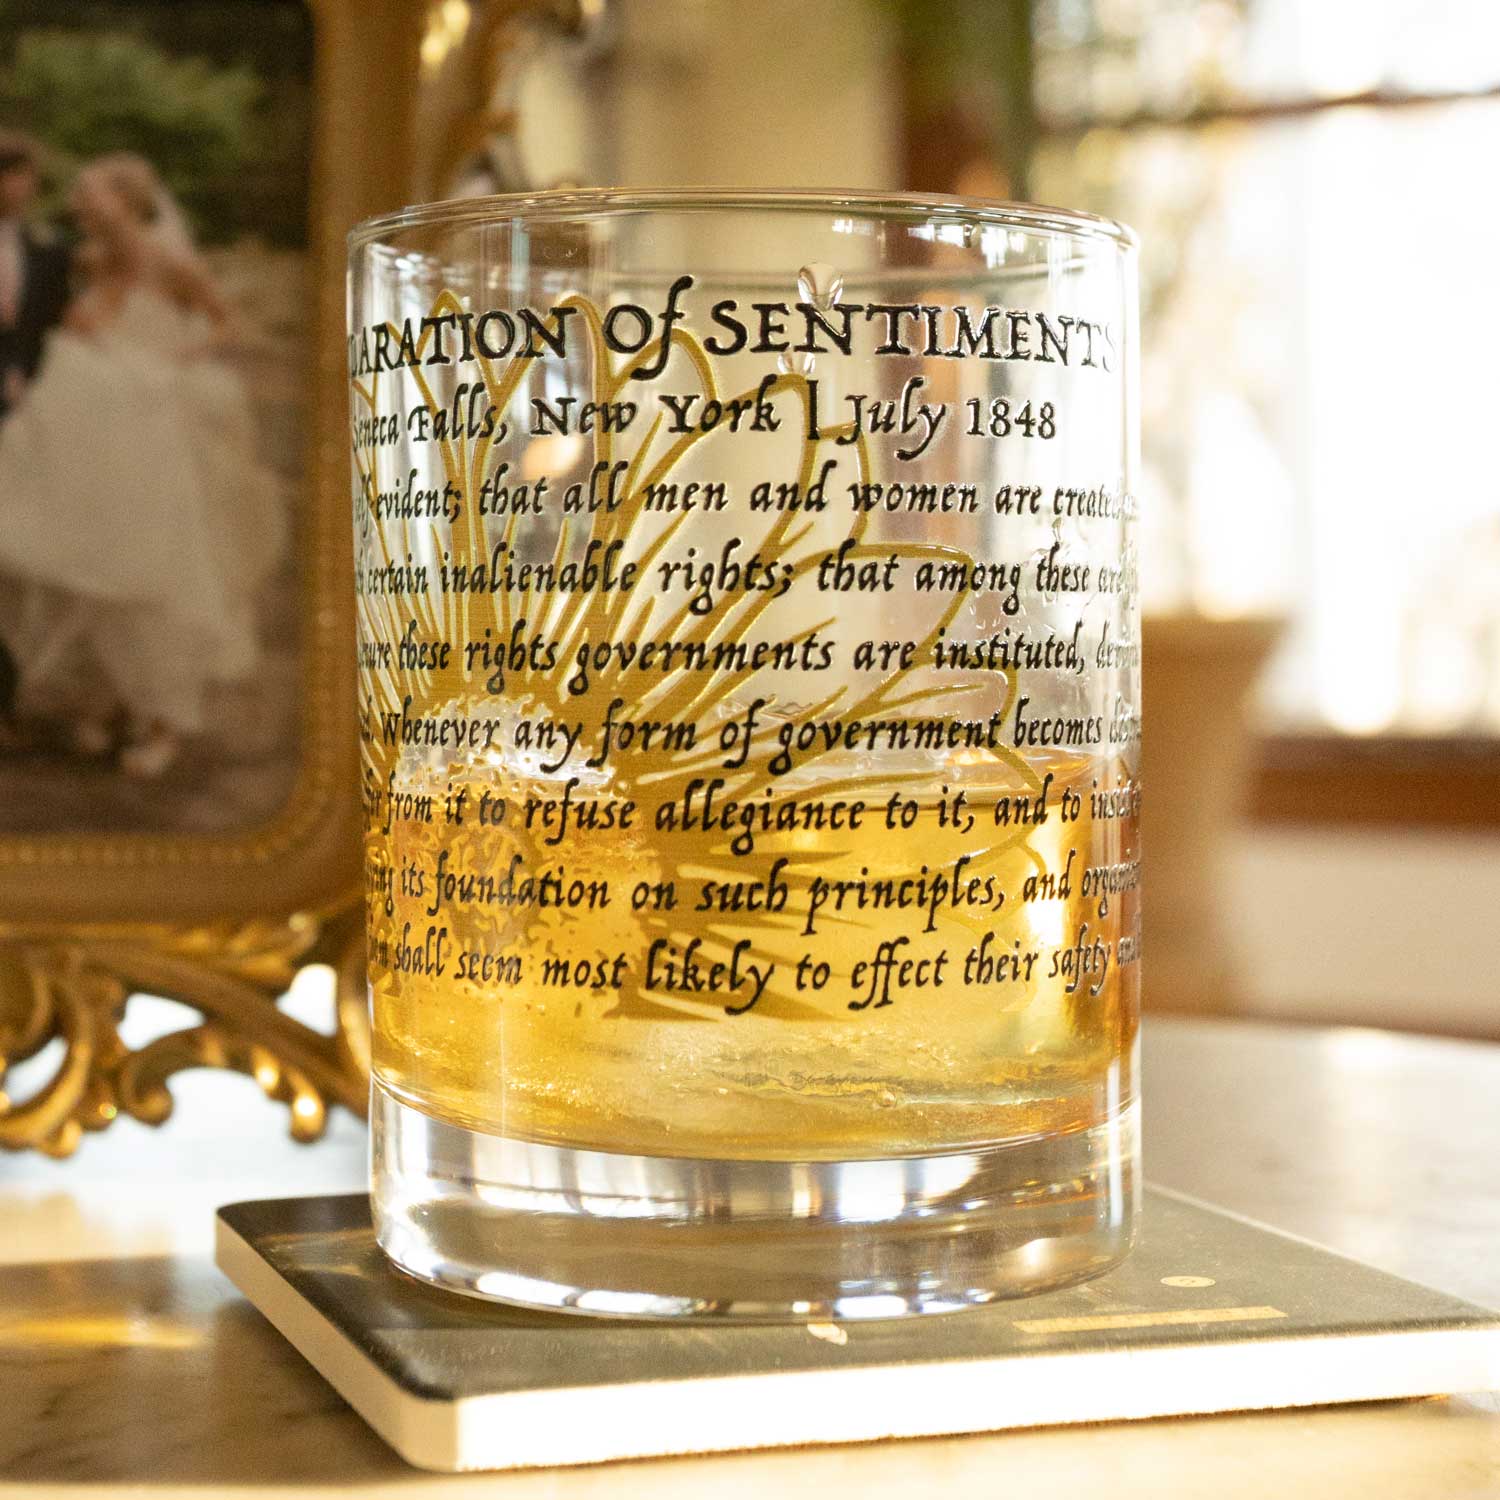 DECLARATION of SENTIMENTS
Seneca Falls, New York | July 1848
self-evident; that all men and women are created
certain inalienable rights; that among these are
these rights governments are instituted,
Whenever any form of government becomes
from it to refuse allegiance to it, and to insist
its foundation on such principles, and
shall seem most likely to effect their safety and